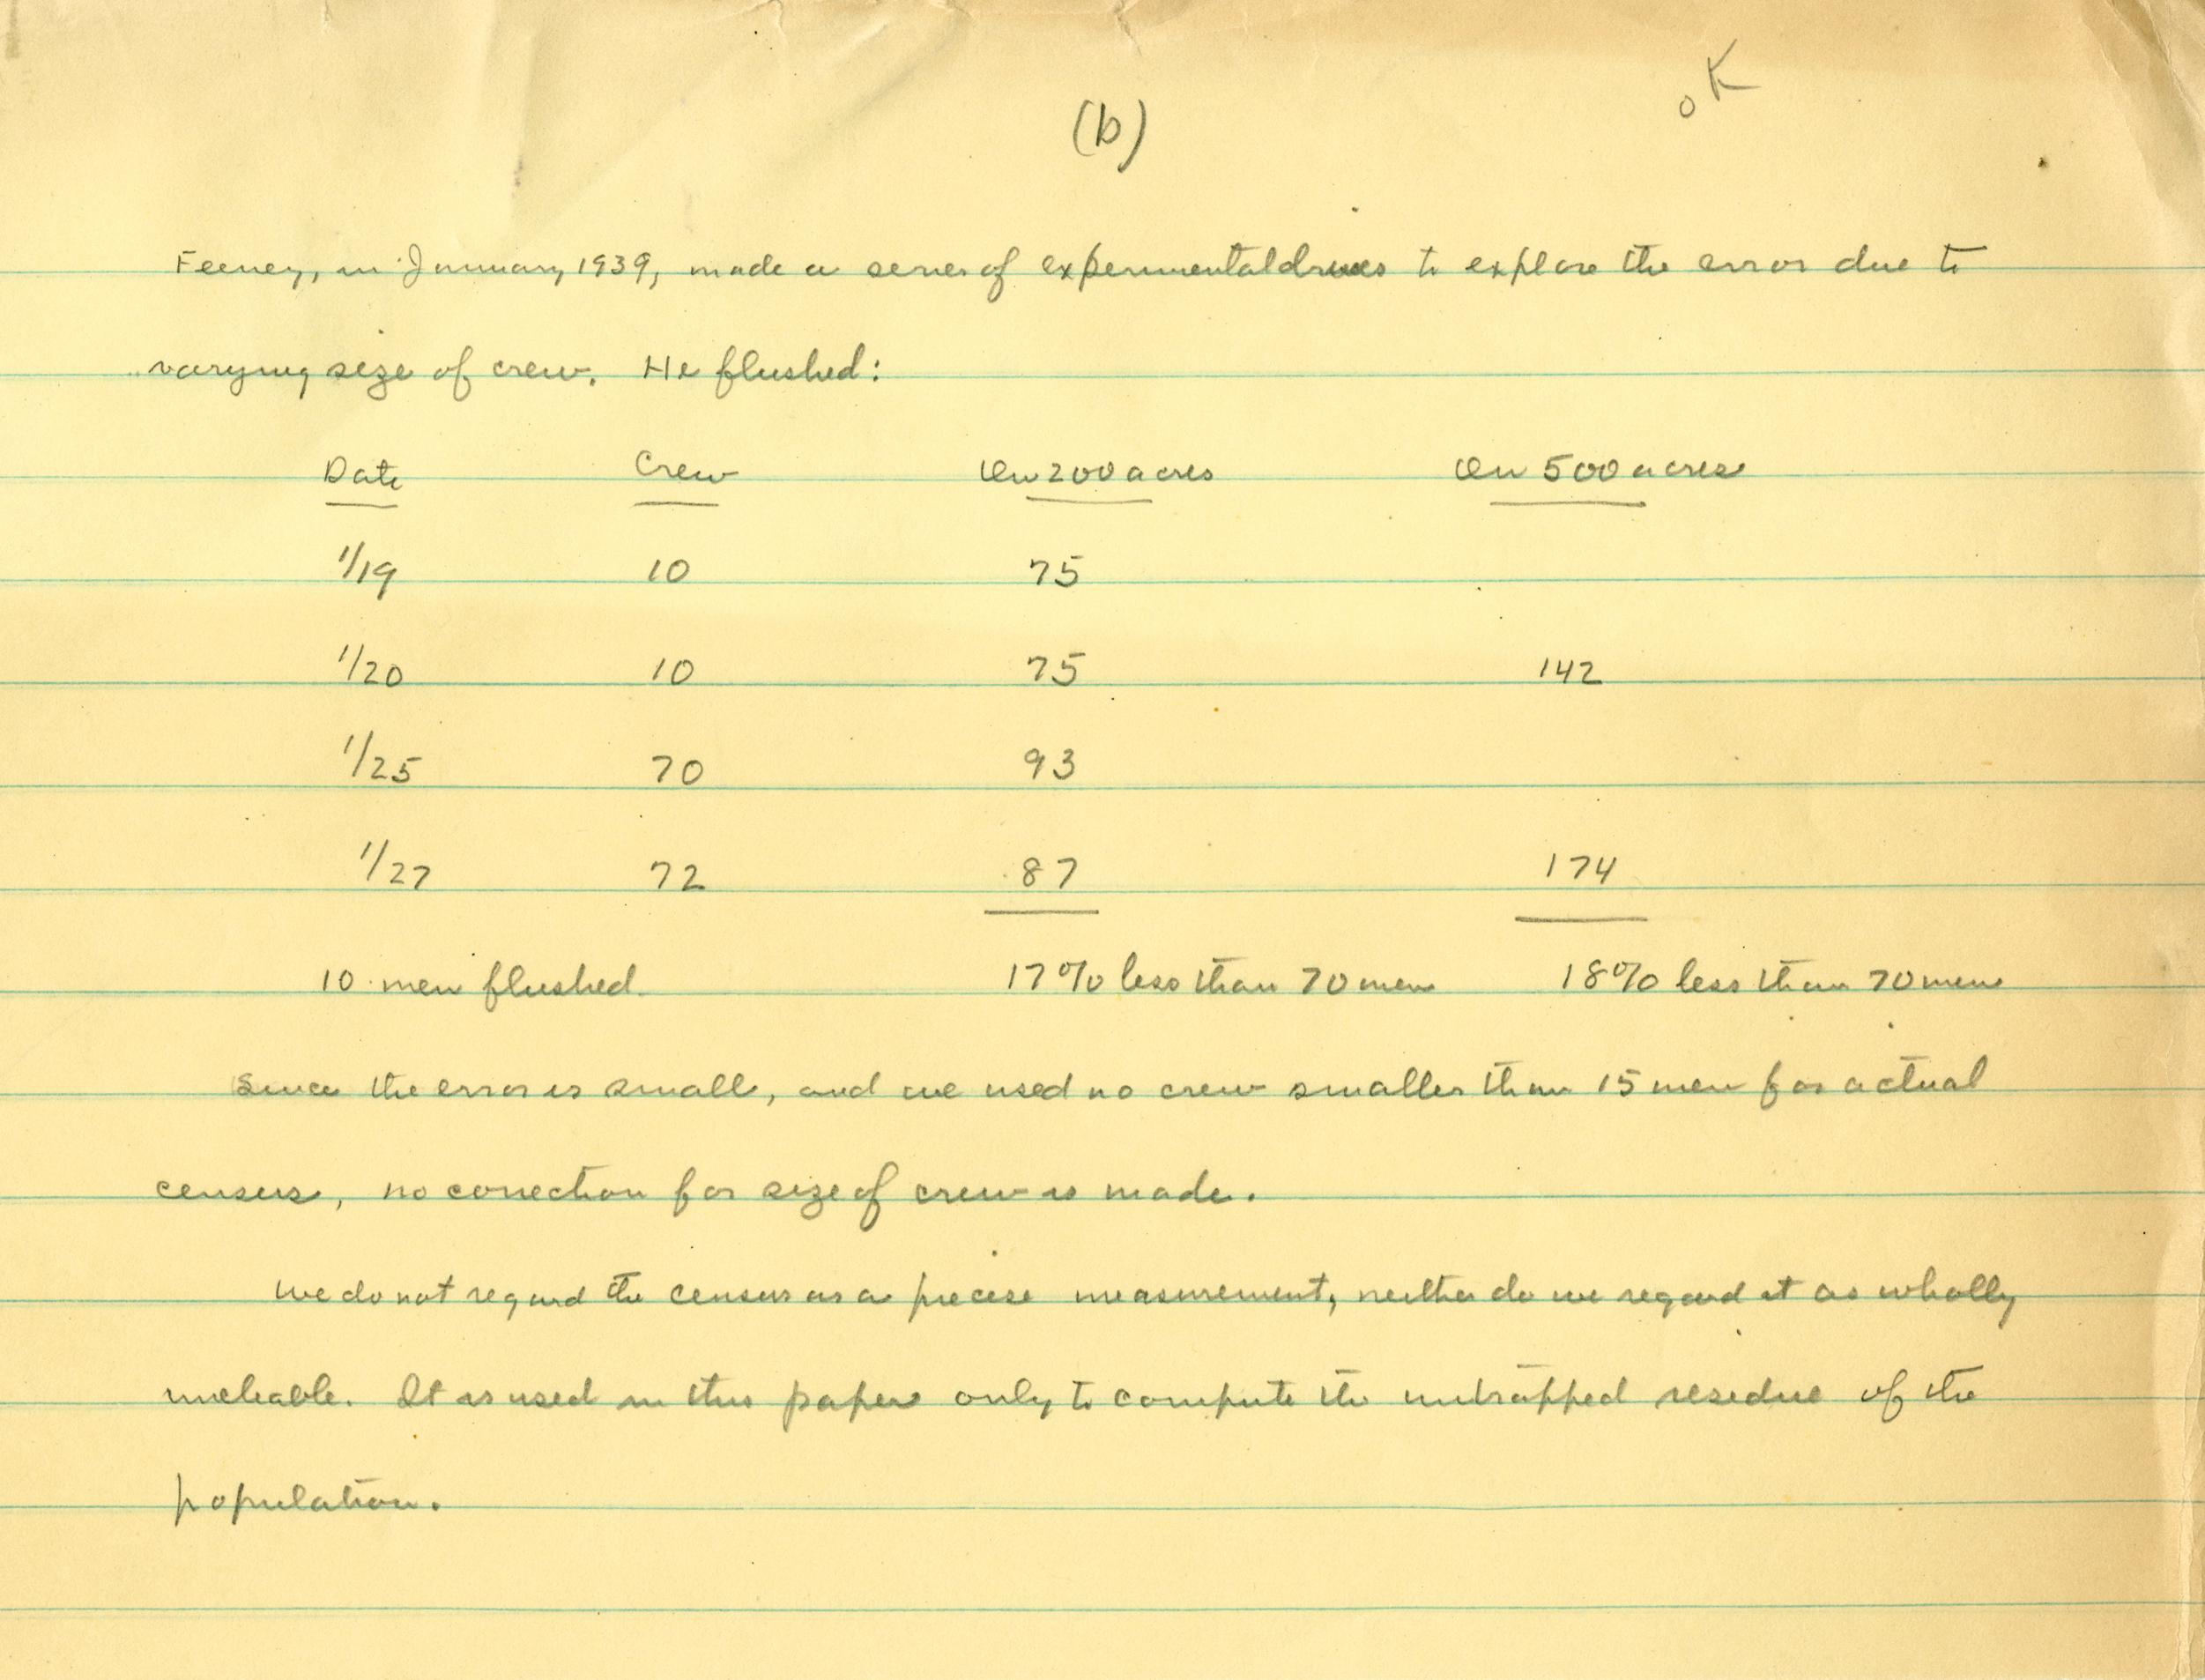 OK
(b)
Feeney, in January 1939, made a series of experimental drives to explore the error due to
varying size of crew. He flushed:
Date Crew On 200 acres On 500 acres
1/19 10 75
1/20 10 75 142
1/25 70 93
1/27 72 87 174
10 men flushed 17% less than 70 men 18% less than 70 men
Since the error is small, and we used no crew smaller than 15 men for actual
census, no correction for size of crew is made.
We do not regard the census as a precise measurement, neither do we regard it as wholly
unreliable. It is used in this paper only to compute the untrapped residue of the
population.